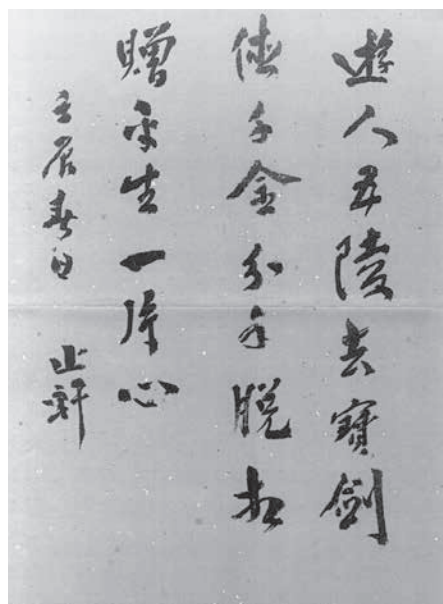 遊人五陵去寶劍
値千金分手脱相
贈平生一片心
壬辰春日 山軒